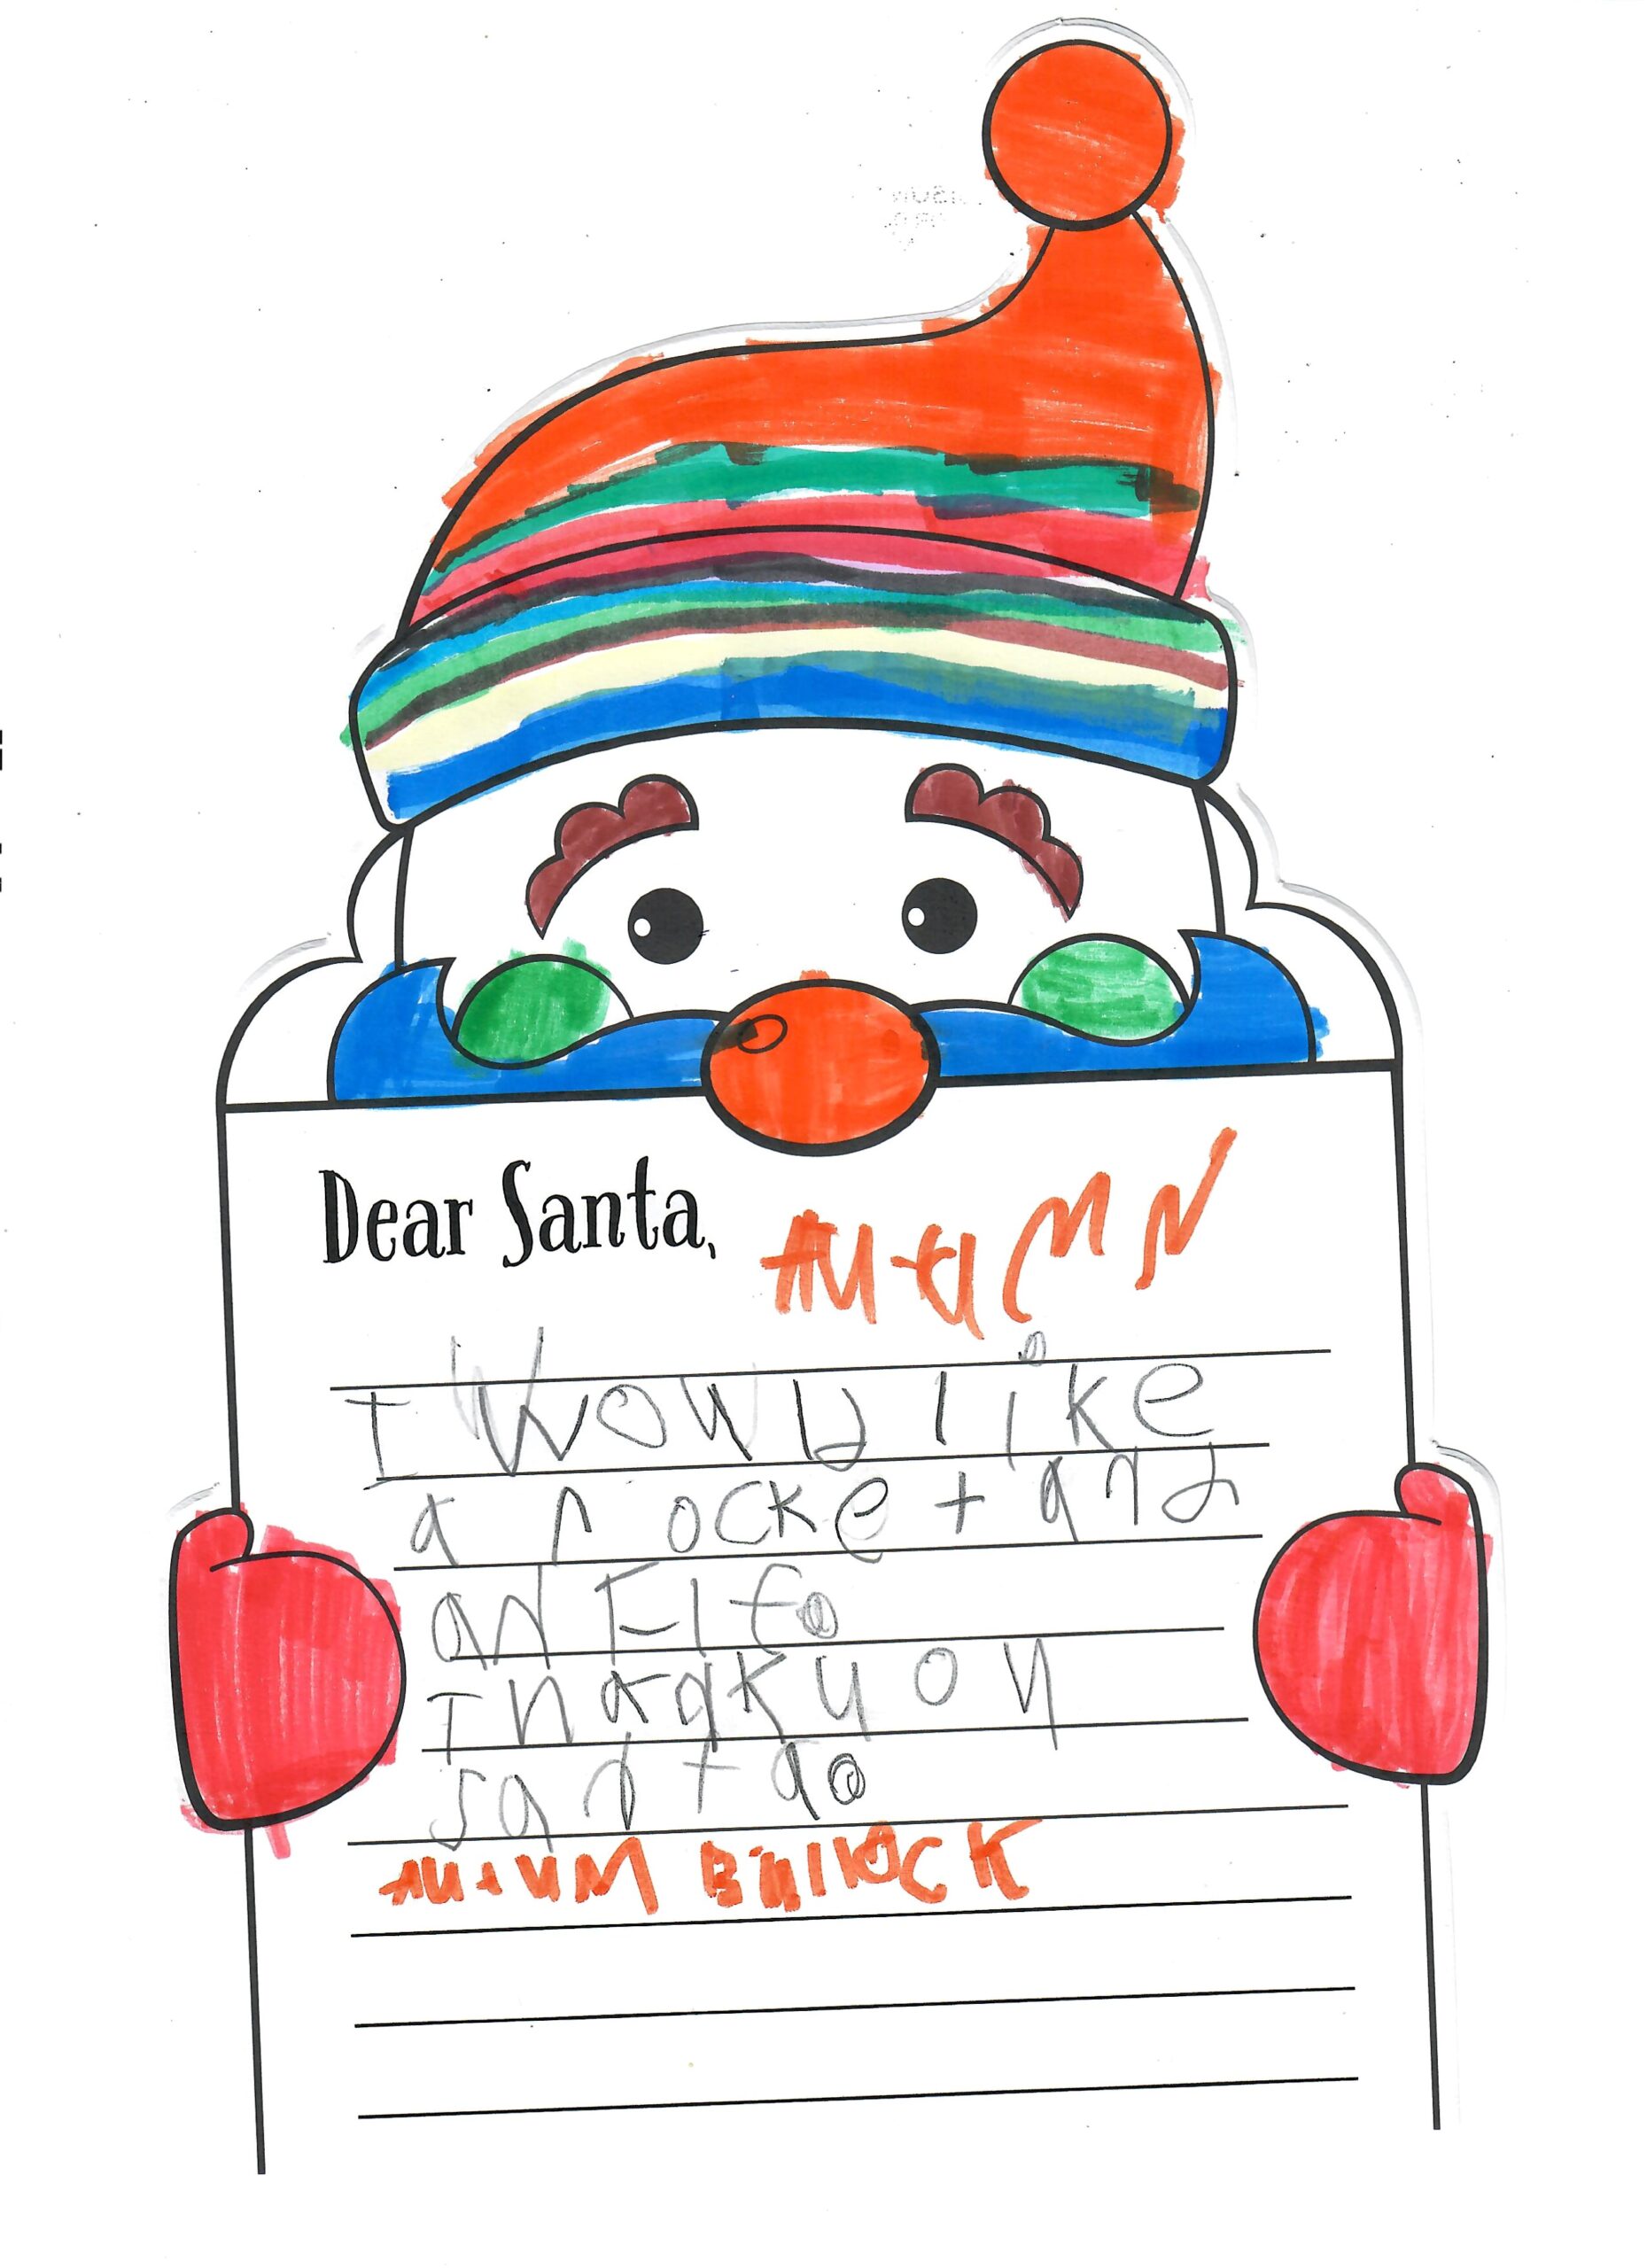 Dear Santa, AUtUMN
I Wowld like
a rocket and
an Elfo
Thankyou
Santao
AUtUM BUllOCK